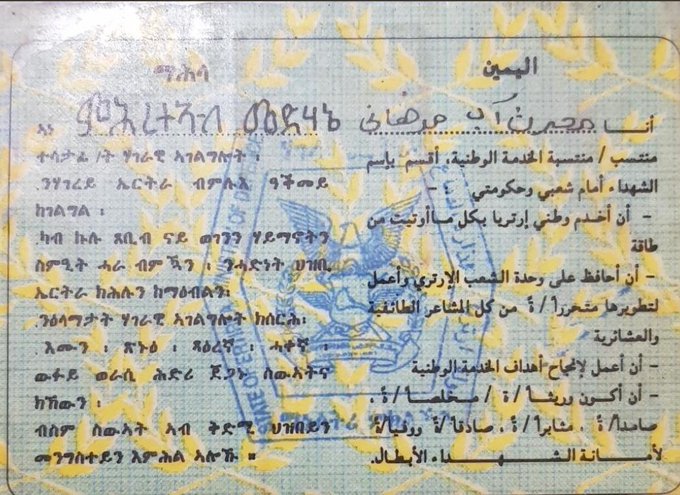 ማሕላ
ኣነ ምሕረተኣብ መድሃኔ
ተሳታፊ /ት ሃገራዊ ኣገልግሎት ፡
. ንሃገረይ ኤርትራ ብምሉእ ዓቕመይ
ከገልግል ፡
. ካብ ኩሉ ጸቢብ ናይ ወገንን ሃይማኖትን
ስምዒት ሓራ ብምዃን ፡ ንሓድነት ህዝቢ
ኤርትራ ክሕሉን ከማዕብልን፡
. ንዕላማታት ሃገራዊ ኣገልግሎት ክሰርሕ፡
. እሙን ፡ ጽኑዕ ፡ ጻዕረኛ ፡ ሓቀኛ ፡
ውፉይ ወራሲ ሕድሪ ጀጋኑ ስውኣትና
ክኸውን ፡
ብስም ስውኣት ኣብ ቅድሚ ህዝበይን
መንግስተይን እምሕል ኣሎኹ ።
اليمين
أنا محرت آب مدهاني
منتسب / منتسبة الخدمة الوطنية، أقسم بإسم
الشهداء أمام شعبي وحكومتي -
- أن أخدم وطني إرتريا بكل ما أوتيت من
طاقة
- أن أحافظ على وحدة الشعب الإرتري وأعمل
لتطويرها متحررا / ةً من كل المشاعر الطائفية
والعشائرية
- أن أعمل لإنجاح أهداف الخدمة الوطنية
- أن أكون وريثاً / ةً / مخلصاً / ةً ،
صامداً / ةً ، مثابراً / ةً ، صادقاً / ةً ووفياً / ةً
لأمانة الشهداء الأبطال.